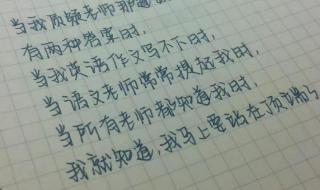 当我质疑老师那道题
有两种答案时,
当我英语作文写不下时,
当语文老师常常提起我时,
当所有老师都知道我时,
我就知道,我马上要站在顶端了